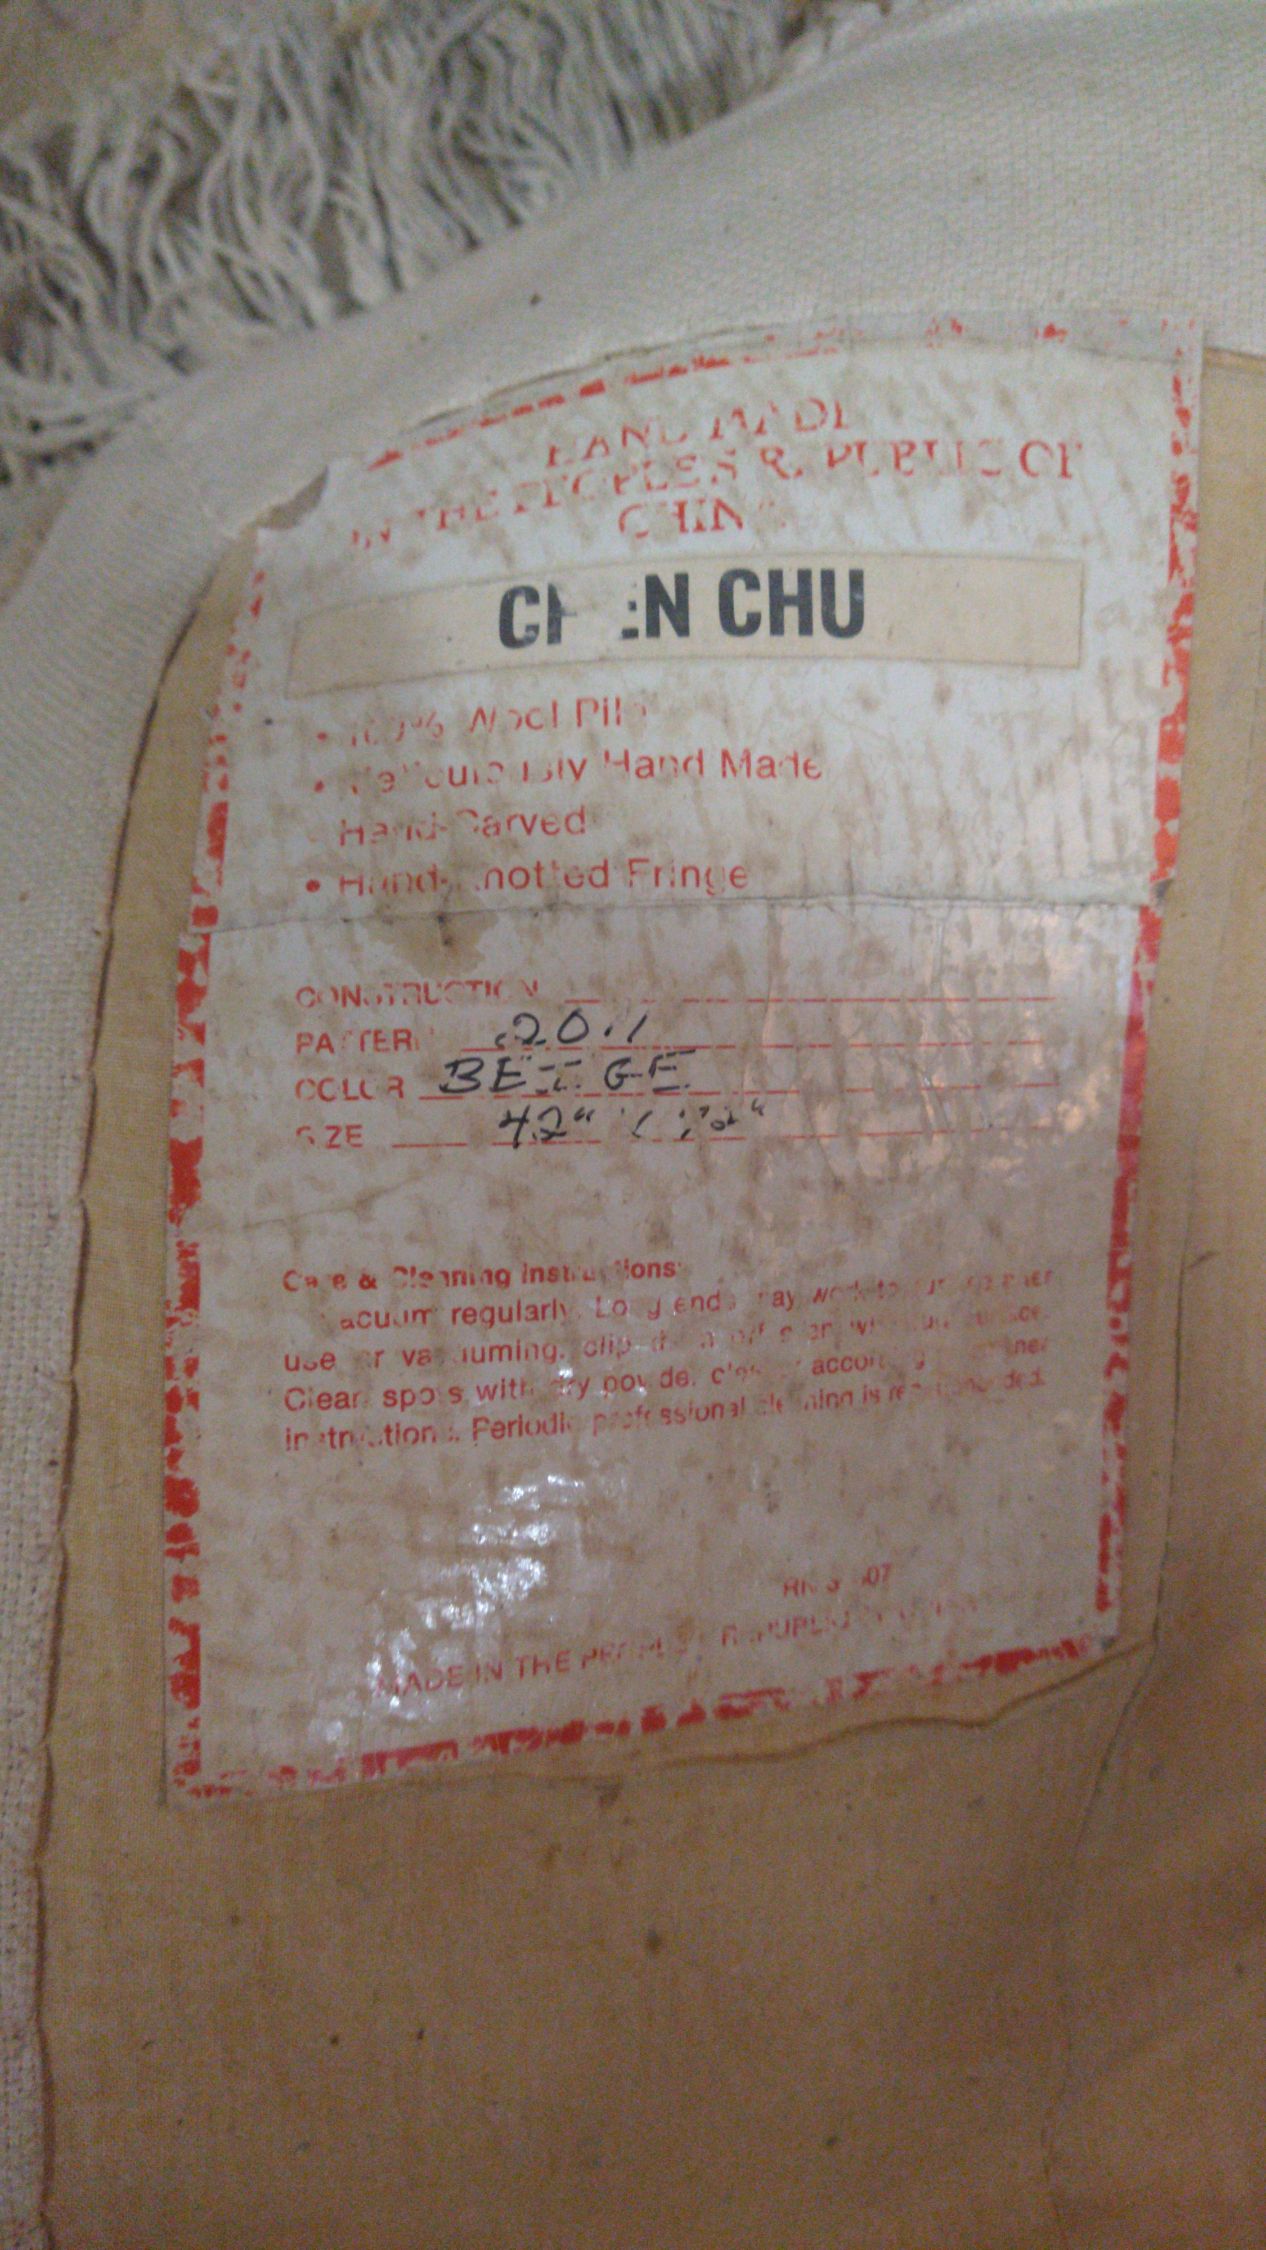 HAND MADE
IN THE PEOPLES REPUBLIC OF
CHINA
CHEN CHU
• 100% Wool Pile
• Meticulously Hand Made
Hand-Carved
• Hand-Knotted Fringe
CONSTRUCTION
PATTERN
COLOR BEIGE
SIZE 42"
Care & Cleaning Instructions:
Vacuum regularly. Long ends may work to
use or vacuuming, clip them off
Clean spots with dry powder cleaner according
instructions. Periodic professional cleaning is recommended.
MADE IN THE PEOPLES REPUBLIC OF CHINA